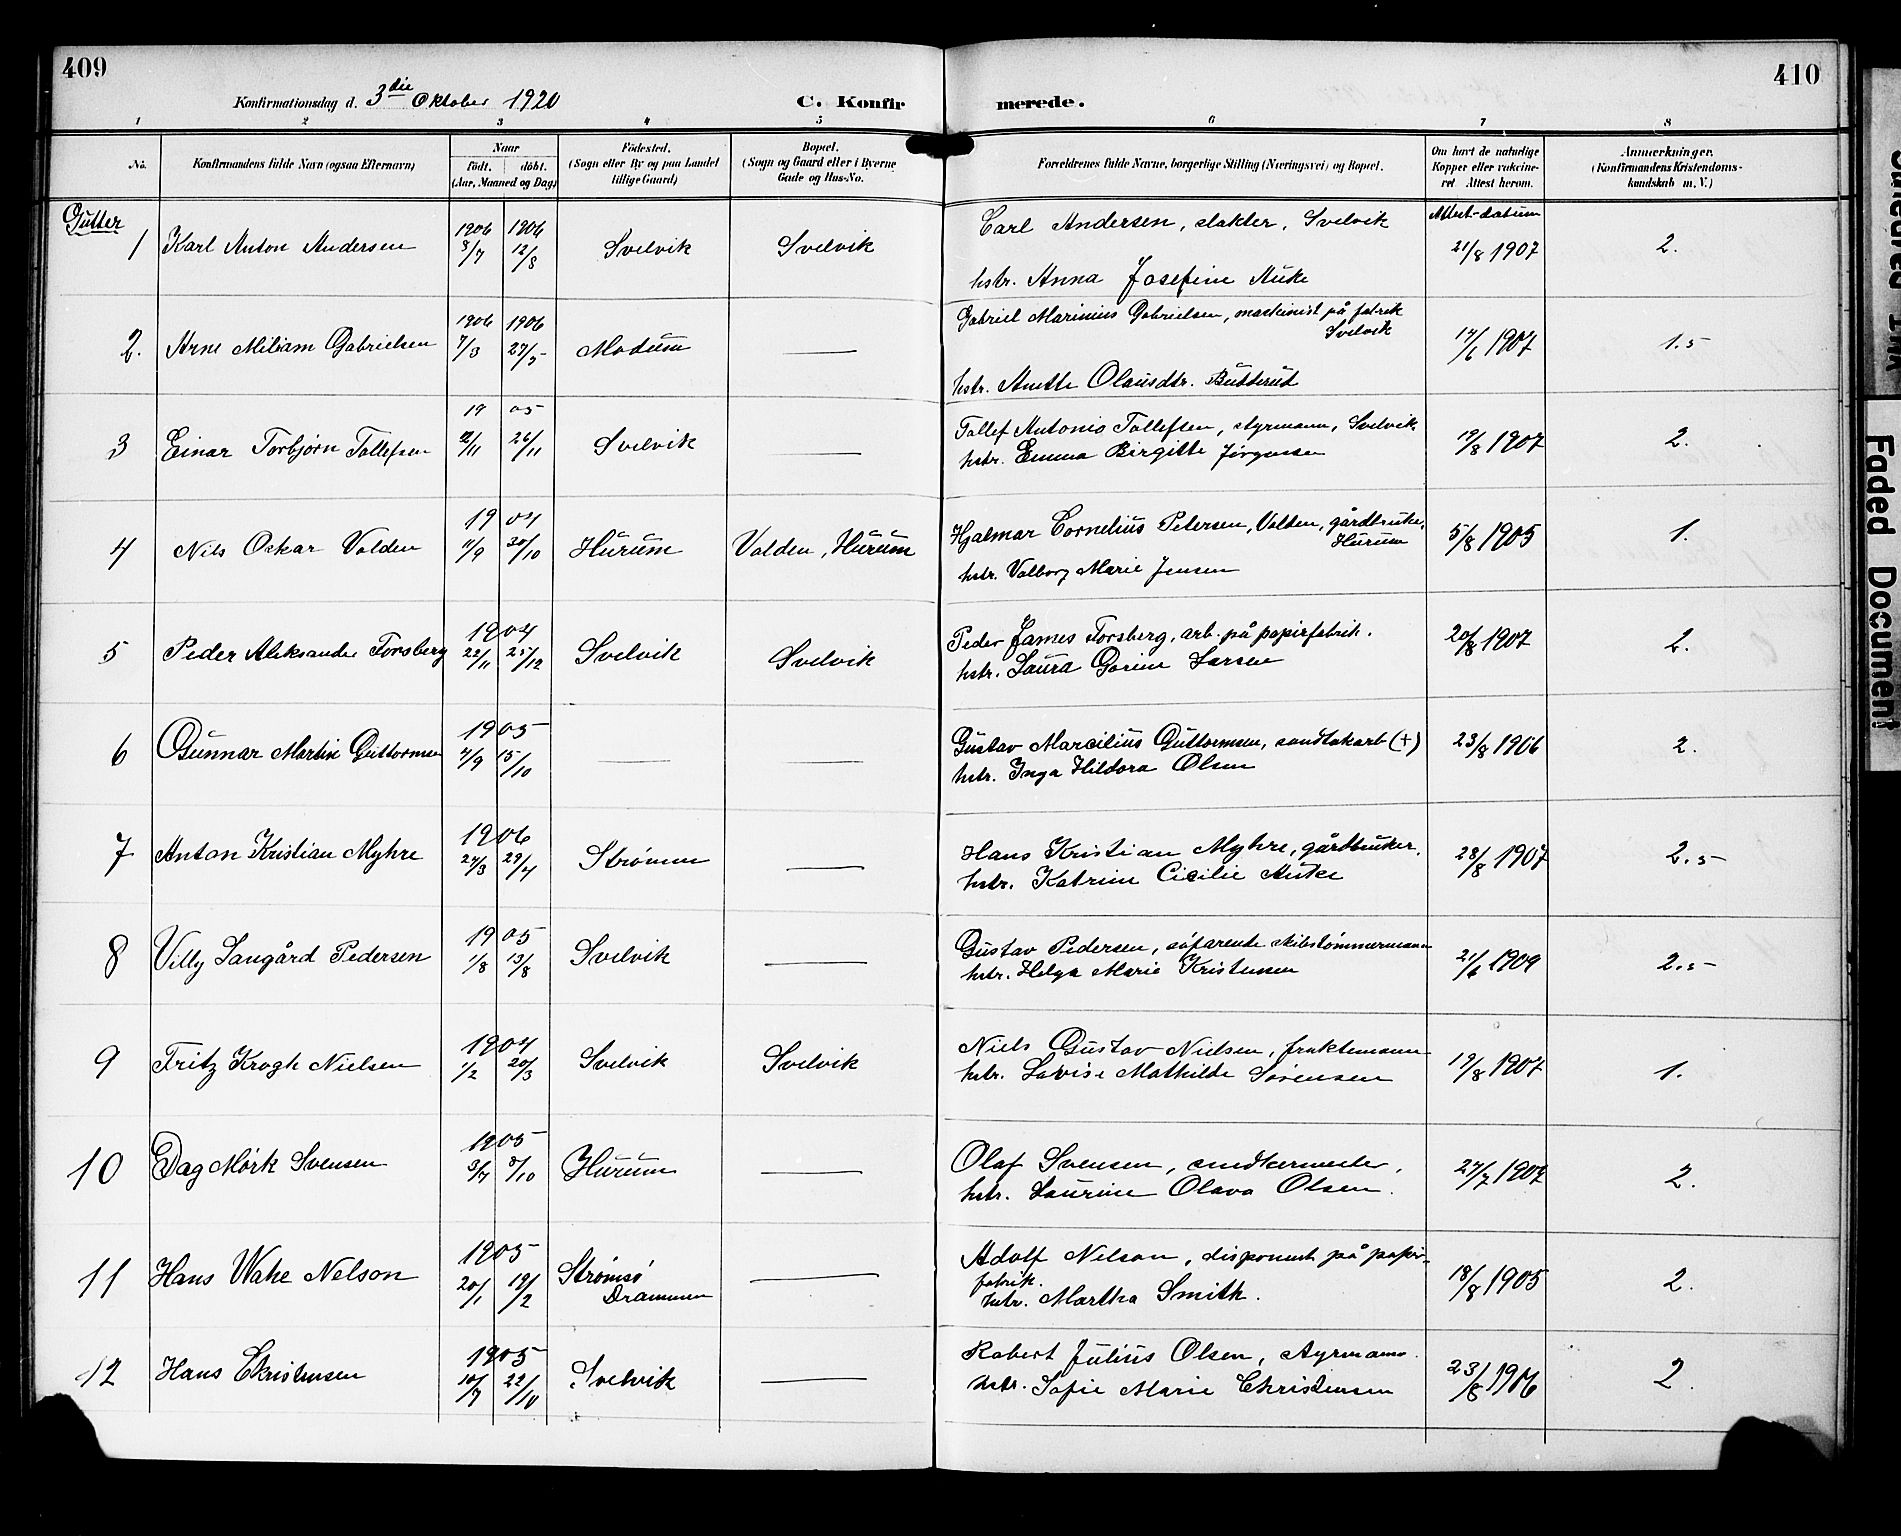 409
410
Konfirmationsdag d. 3die Oktober 1920
C. Konfir merede.
1 2 3 4 5 6 7 8
No.
Konfirmandens fulde Navn (ogsaa Efternavn)
Naar
født. døbt.
(Aar, Maaned og Dag)
Fødested.
(Sogn eller By og paa Landet
tillige Gaard)
Bopæl.
(Sogn og Gaard eller i Byerne
Gade og Hus-No.
Forældrenes fulde Navne, borgerlige Stilling (Næringsvei) og Bopæl.
Om havt de naturlige
Kopper eller vakcine-
ret. Attest herom.
Anmærkninger.
(Konfirmandens Kristendoms-
kundskab m. V.)
Gutter
Attest-datum
1 Karl Anton Andersen 1906 8/7 1906 12/8 Svelvik Svelvik
Carl Andersen, slakter, Svelvik
hstr. Anna Josefine Auke
21/8 1907 2.
2. Arne Miliam Gabrielsen 1906 7/3 1906 27/5 Modum —
Gabriel Marinius Gabrielsen, maskinist på fabrik
Svelvik
hstr. Anette Olausdtr. Butterud
17/6 1907 1.5
3 Einar Torbjørn Tollefsen 19 05 12/11 26/11 Svelvik —
Tollef Antonio Tollefsen, styrmann, Svelvik
hstr. Emma Birgitte Jørgensen
19/8 1907 2.
4 Nils Oskar Valden 19 04 11/9 30/10 Hurum Valden, Hurum
Hjalmar Cornelius Petersen, Valden, gårdbruker,
Hurum
hstr. Valborg Marie Jensen
5/8 1905 1.
5 Peder Aleksander Forsberg 1904 22/11 25/12 Svelvik Svelvik
Peder James Forsberg, arb. på papirfabrik.
hstr. Laura Gorine Larsen
20/8 1907 2.
6 Gunnar Martin Guttormsen 1905 4/9 15/10 — —
Gustav Marcilius Guttormsen, sandtakarb (+)
hstr. Inga Hildora Olsen
23/8 1906 2.
7 Anton Kristian Myhre 1906 24/3 29/4 Strømm —
Hans Kristian Myhre, gårdbruker.
hstr. Katrine Cicilie Auke
28/8 1907 2.5
8 Villy Langård Pedersen 19 05 1/8 13/8 Svelvik —
Gustav Pedersen, søfarende skibstømmermann
hstr. Helga Marie Kristensen
21/6 1909 2.5
9 Fritz Krogh Nielsen 1904 1/2 20/3 Svelvik Svelvik
Niels Gustav Nielsen, fraktemann
hstr. Lovise Mathilde Sørensen
19/8 1907 1.
10 Dag Mørk Svensen 1905 3/7 8/10 Hurum —
Olaf Svensen, snedkermester,
hstr. Laurine Olava Olsen.
27/7 1907 2.
11 Hans Wake Nelson 1905 20/1 19/2 Strømsø
Drammen —
Adolf Nelson, disponent på papir-
fabrik.
hstr. Martha Smith.
18/8 1905 2.
12 Hans Christensen 1905 10/7 22/10 Svelvik —
Robert Julius Olsen, styrmann.
hstr. Sofie Marie Christensen
23/8 1906 2.
Faded Document